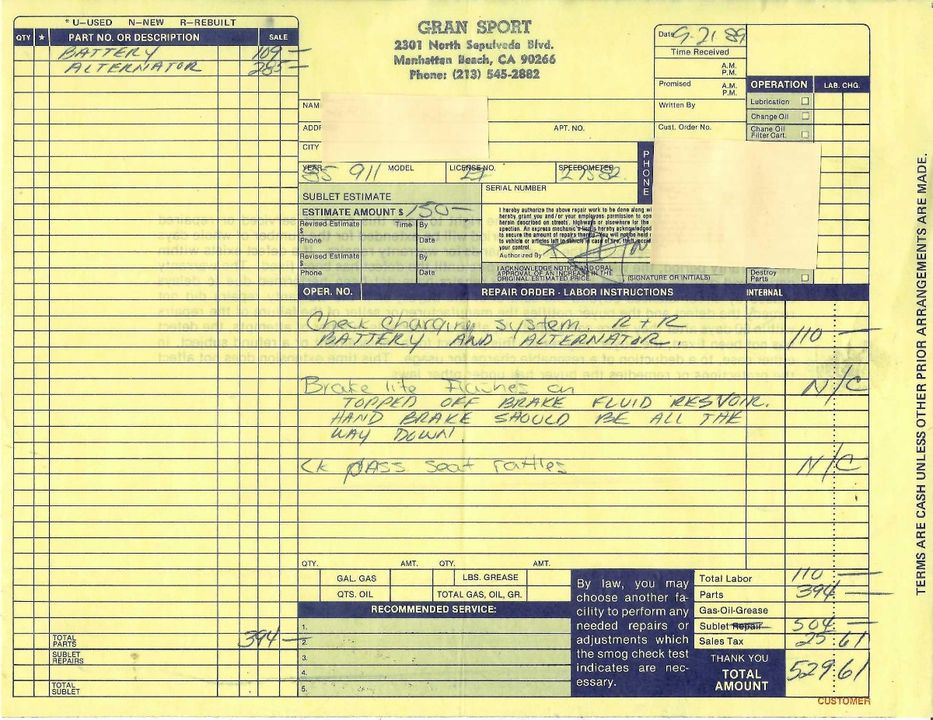 * U–USED N–NEW R–REBUILT
QTY * PART NO. OR DESCRIPTION SALE
BATTERY 109 —
ALTERNATOR 285 —
GRAN SPORT
2301 North Sepulveda Blvd.
Manhattan Beach, CA 90266
Phone: (213) 545-2882
Date 9-21 89
Time Received
A.M.
P.M.
Promised A.M.
P.M.
Written By
Cust. Order No.
OPERATION LAB. CHG.
Lubrication
Change Oil
Chane Oil
Filter Cart.
NAM
ADDR APT. NO.
CITY
PHONE
YEAR 85 911 MODEL LICENSE NO. SPEEDOMETER
SERIAL NUMBER
SUBLET ESTIMATE
ESTIMATE AMOUNT $ 150 —
Revised Estimate Time By
$
Phone Date
Revised Estimate By
$
Phone Date
I hereby authorize the above repair work to be done along wi
hereby grant you and/or your employees permission to ope
herein described on streets, highways or elsewhere for the
spection. An express mechanic's lien is hereby acknowledged
to secure the amount of repairs thereto. You will not be held r
to vehicle or articles left in vehicle in case of fire, theft,
your control.
Authorized By
I ACKNOWLEDGE NOTICE AND ORAL
APPROVAL OF AN INCREASE IN THE
ORIGINAL ESTIMATED PRICE (SIGNATURE OR INITIALS)
Destroy
Parts
OPER. NO. REPAIR ORDER - LABOR INSTRUCTIONS INTERNAL
Check charging system. R + R
BATTERY AND ALTERNATOR. 110 —
Brake lite Flashes on N/C
TOPPED OFF BRAKE FLUID RESVOIR.
HAND BRAKE SHOULD BE ALL THE
WAY DOWN.
CK PASS seat rattles N/C
QTY. AMT. QTY. AMT.
GAL. GAS LBS. GREASE
QTS. OIL TOTAL GAS, OIL, GR.
RECOMMENDED SERVICE:
1.
2.
3.
4.
5.
By law, you may
choose another fa-
cility to perform any
needed repairs or
adjustments which
the smog check test
indicates are nec-
essary.
Total Labor 110 —
Parts 394 —
Gas-Oil-Grease
Sublet Repair 504 —
Sales Tax 25 61
THANK YOU
TOTAL
AMOUNT 529 61
TOTAL
PARTS 394 —
SUBLET
REPAIRS
TOTAL
SUBLET
CUSTOMER
TERMS ARE CASH UNLESS OTHER PRIOR ARRANGEMENTS ARE MADE.